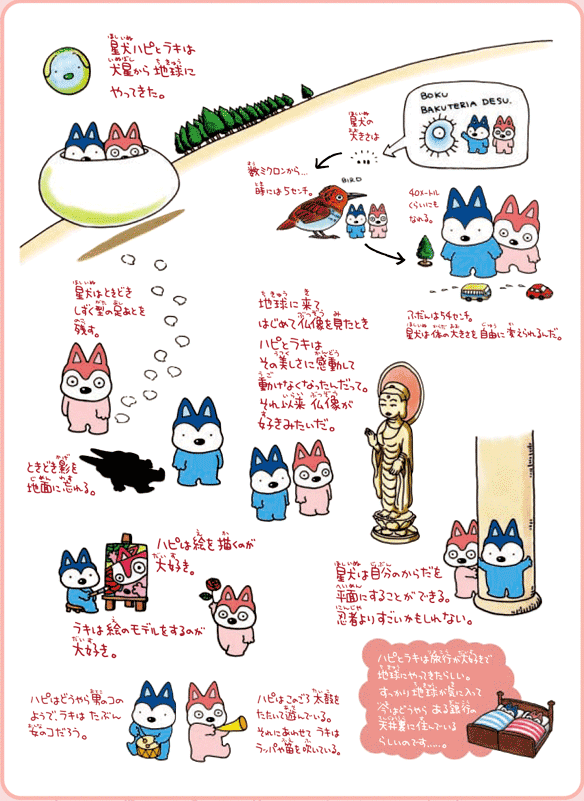 星犬ハピとラキは
犬星から地球に
やってきた。
星犬の
大きさは
BOKU
BAKUTERIA DESU.
数ミクロンから…
時には5センチ。
BIRD
40メートル
くらいにも
なれる。
ふだんは54センチ。
星犬は体の大きさを自由に変えられるんだ。
星犬はときどき
しずく型の足あとを
残す。
ときどき影を
地面に忘れる。
地球に来て
はじめて仏像を見たとき
ハピとラキは
その美しさに感動して
動けなくなったんだって。
それ以来 仏像が
好きみたいだ。
ハピは絵を描くのが
大好き。
ラキは絵のモデルをするのが
大好き。
星犬は自分のからだを
平面にすることができる。
忍者よりすごいかもしれない。
ハピはどうやら男のコの
ようで、ラキは たぶん
女のコだろう。
ハピはこのごろ太鼓を
たたいて遊んでいる。
それにあわせて ラキは
ラッパや笛を吹いている。
ハピとラキは旅行が大好きで
地球にやってきたらしい。
すっかり地球が気に入って
今はどうやら ある銀行の
天井裏に住んでいる
らしいのです……。